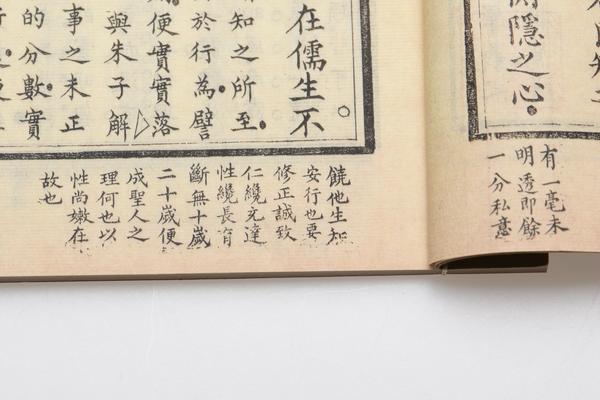 隱之心。
有一毫未
明透即餘
一分私意
在儒生不
知之所至。
於行為譬
便實實落
與朱子解
事之未正
的分數。實
饒他生知
安行也要
修正誠致
仁纔充達
性纔長育
斷無十歲
二十歲便
成聖人之
理何也以
性尚嫩在
故也